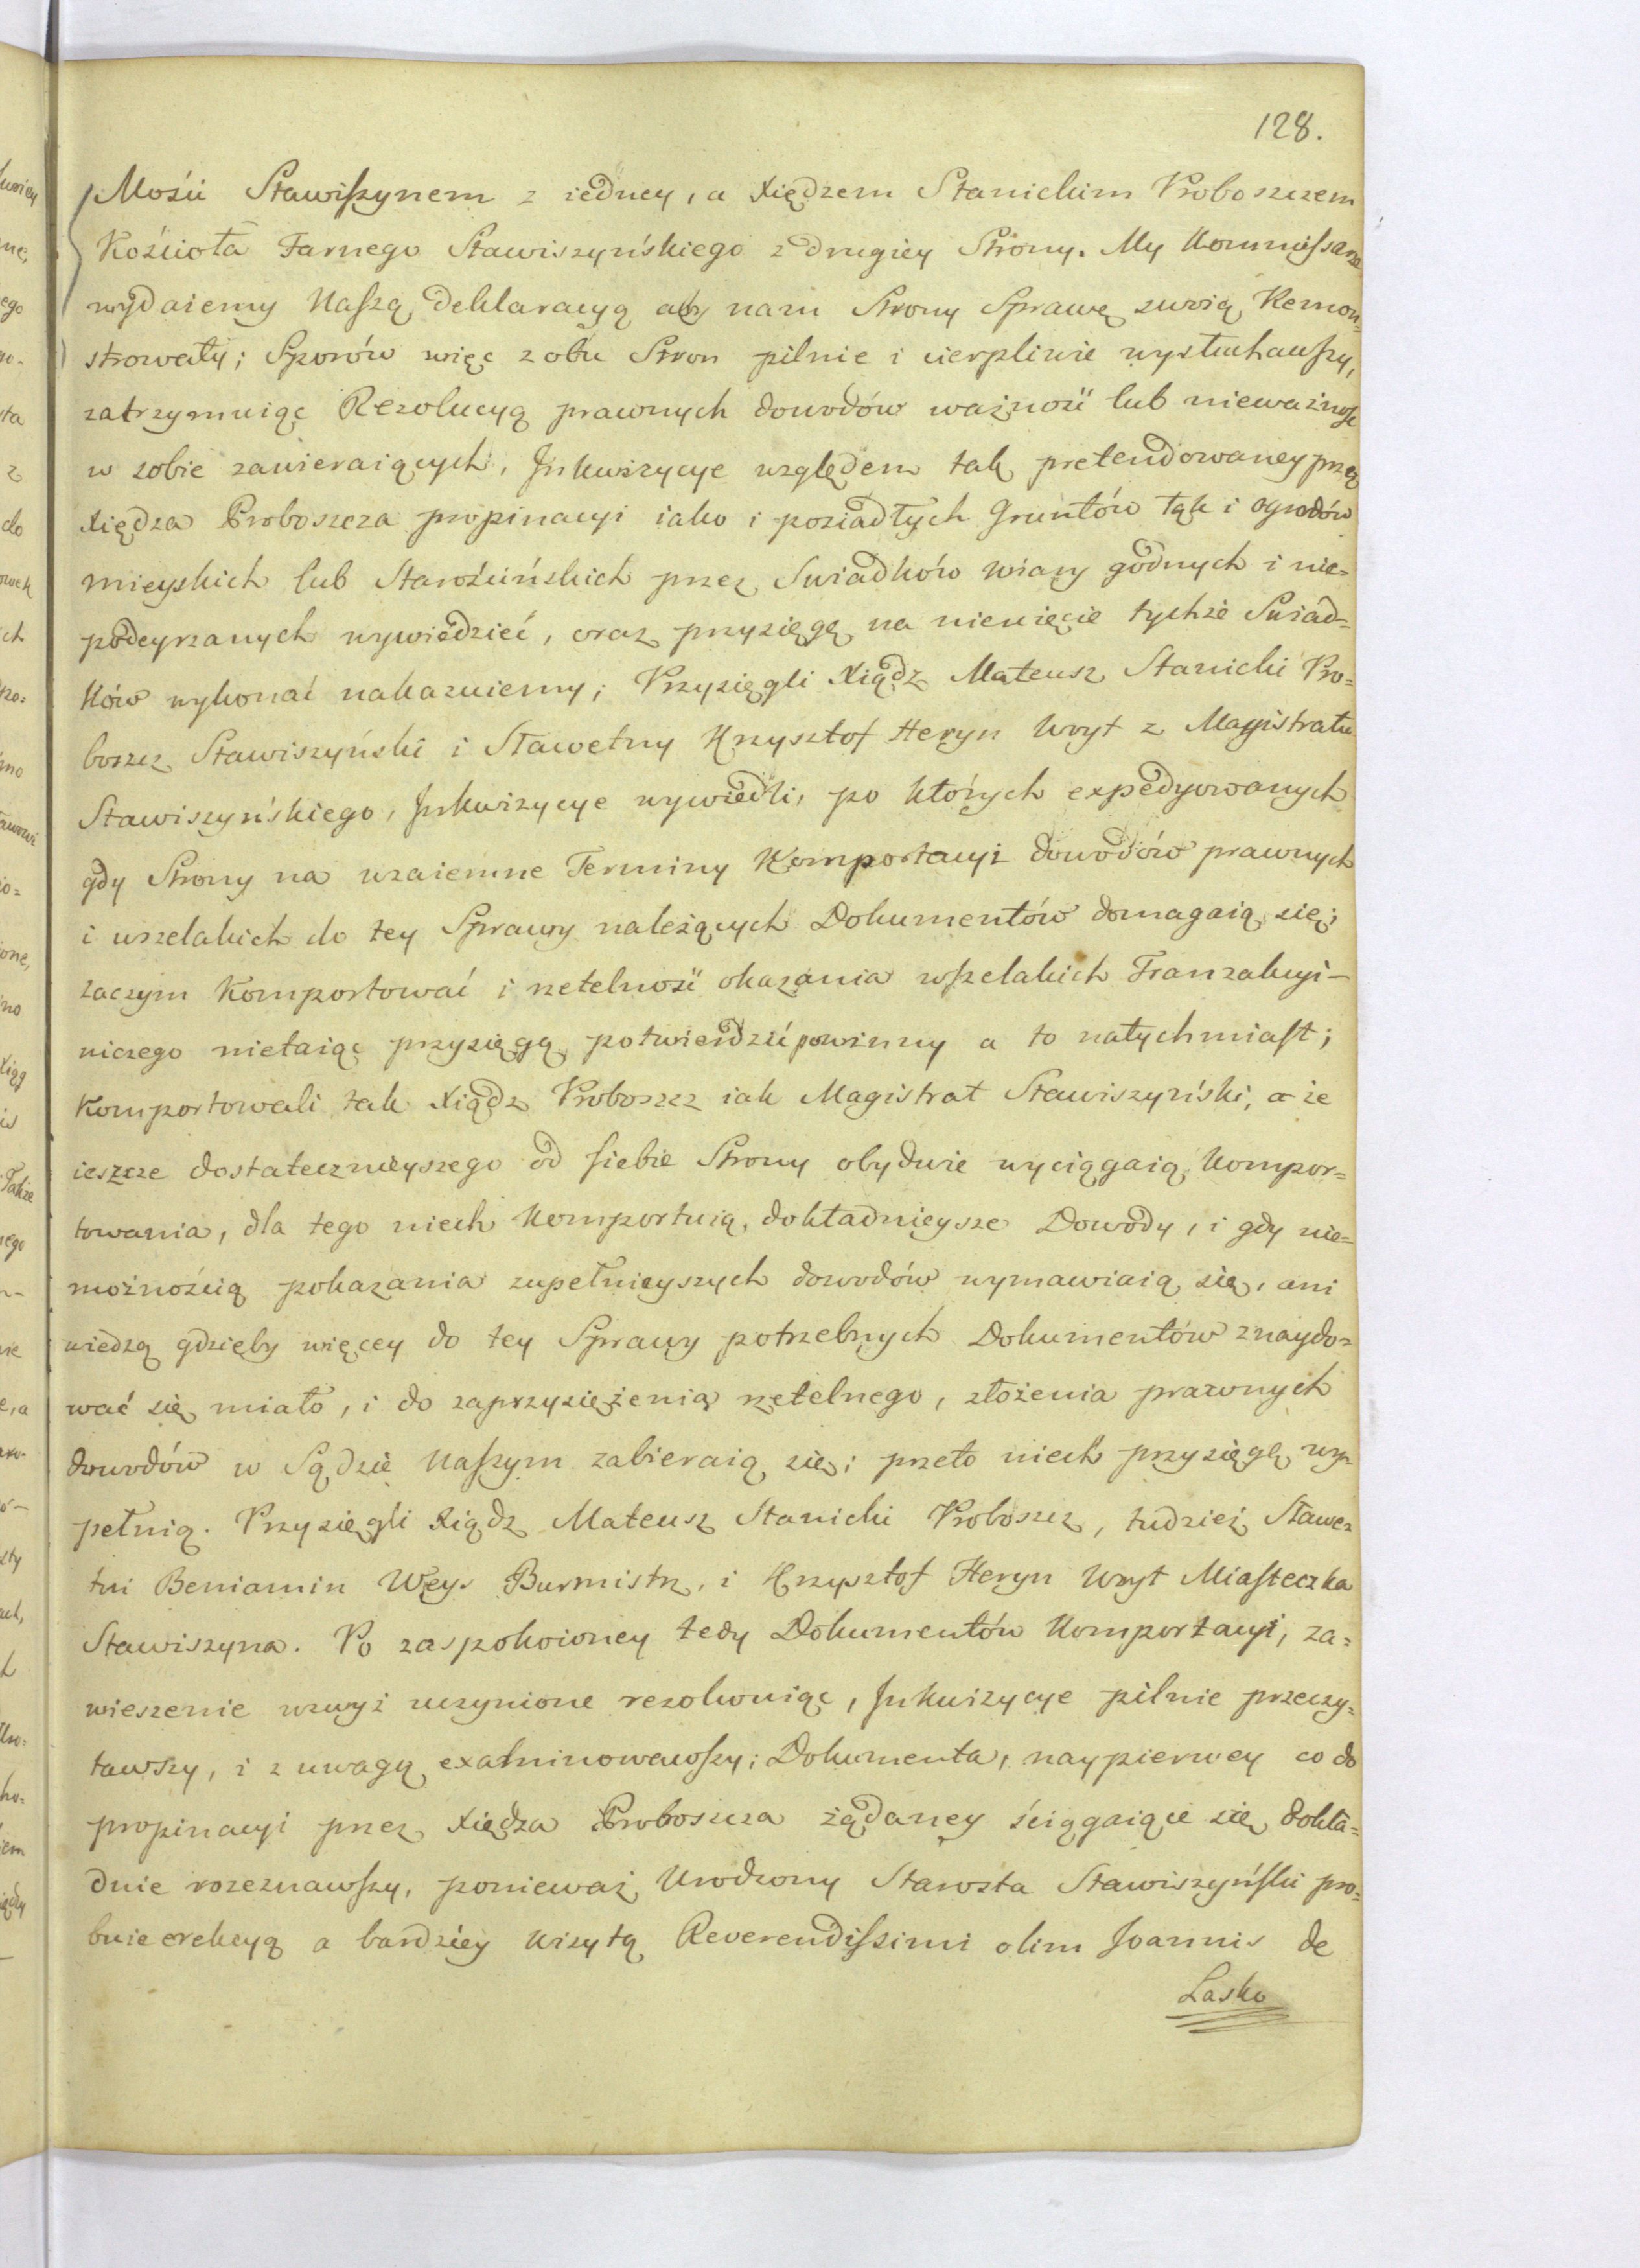 128.
Mości Stawiſzynem z iedney, a Xiędzem Stanickim Proboszczem
Kościoła Farnego Stawiszyńskiego z drugiey Strony. My Kommiſsarze
wydaiemy Naſzą deklaracyą aby nam Strony Sprawę swoią Remon=
strowały; Sporów więc z obu Stron pilnie i cierpliwie wysłuchawſzy,
zatrzymuiąc Rezolucyą prawnych dowodów ważność lub nieważność
w sobie zawieraiących, Inkwizycye względem tak pretendowaney przez
Xiędza Proboszcza propinacyi iako i posiadłych Gruntów łąk i ogrodów
mieyskich lub Starościńskich przez Swiadków wiary godnych i nie=
podeyrzanych wywiedzieć, oraz przysięgę na niewięcie tychże Swiad=
ków wykonać nakazuiemy; Przysięgli Xiądz Mateusz Stanicki Pro=
boszcz Stawiszyński i Sławetny Krzysztof Heryn Woyt z Magistratu
Stawiszyńskiego, Inkwizycye wywiedli, po których expedyowanych
gdy Strony na wzaiemne Terminy Komportacyi dowodów prawnych
i wszelakich do tey Sprawy należących Dokumentów domagaią się;
zaczym Komportować i rzetelność okazania wſzelakich Tranzakcyi –
niczego nietaiąc przysięgą potwierdzić powinny a to natychmiaſt;
Komportowali tak Xiądz Proboszcz iak Magistrat Stawiszyński, a że
ieszcze dostatecznieyszego od ſiebie Strony obydwie wyciągaią Kompor=
towania, dla tego niech Komportuią dokładnieysze Dowody, i gdy nie=
możnością pokazania zupełnieyszych dowodów wymawiaią się, ani
wiedzą gdzieby więcey do tey Sprawy potrzebnych Dokumentów znaydo=
wać się miało, i do zaprzysiężenia rzetelnego, złożenia prawnych
dowodów w Sądzie Naſzym zabieraią się; przeto niech przysięgę wy=
pełnią. Przysięgli Xiądz Mateusz Stanicki Proboszcz, tudzież Sławe=
tni Beniamin Weys Burmistrz, i Krzysztof Heryn Woyt Miaſteczka
Stawiszyna. Po zaspokoioney tedy Dokumentów Komportacyi, za=
wieszenie wzwyż uczynione rezolwuiąc, Inkwizycye pilnie przeczy=
tawszy, i z uwagą examinowawſzy; Dokumenta, naypierwey co do
propinacyi przez Xiędza Proboszcza żądaney ściągaiące się dokła=
dnie rozeznawſzy, ponieważ Urodzony Starosta Stawiszyńſki pro=
buie erekcyą a bardziey wizytą Reverendiſsimi olim Joannis de
Lasko